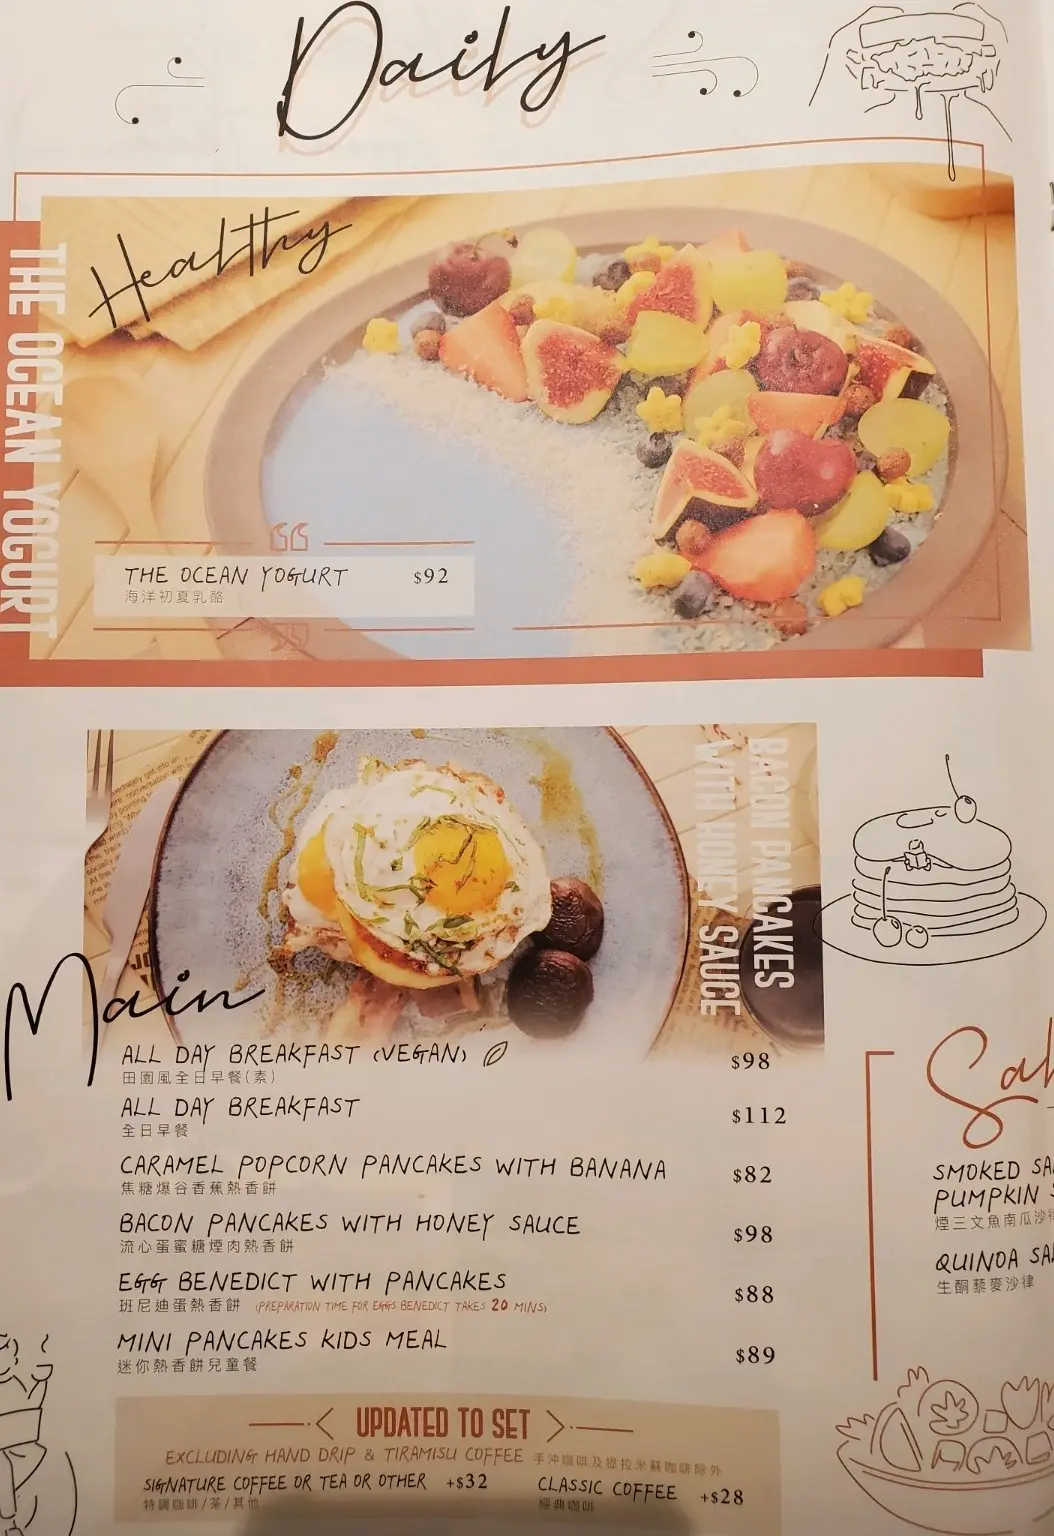 Daily
Healthy
THE OCEAN YOGURT
THE OCEAN YOGURT $92
海洋初夏乳酪
BACON PANCAKES
WITH HONEY SAUCE
Main
ALL DAY BREAKFAST (VEGAN) $98
田園風全日早餐(素)
ALL DAY BREAKFAST $112
全日早餐
CARAMEL POPCORN PANCAKES WITH BANANA $82
焦糖爆谷香蕉熱香餅
BACON PANCAKES WITH HONEY SAUCE $98
流心蛋蜜糖煙肉熱香餅
EGG BENEDICT WITH PANCAKES $88
班尼迪蛋熱香餅 (PREPARATION TIME FOR EGGS BENEDICT TAKES 20 MINS)
MINI PANCAKES KIDS MEAL $89
迷你熱香餅兒童餐
UPDATED TO SET
EXCLUDING HAND DRIP & TIRAMISU COFFEE 手沖咖啡及提拉米蘇咖啡除外
SIGNATURE COFFEE OR TEA OR OTHER +$32
特調咖啡/茶/其他
CLASSIC COFFEE +$28
經典咖啡
SMOKED
PUMPKIN
煙三文魚南瓜沙
QUINOA
生酮藜麥沙律